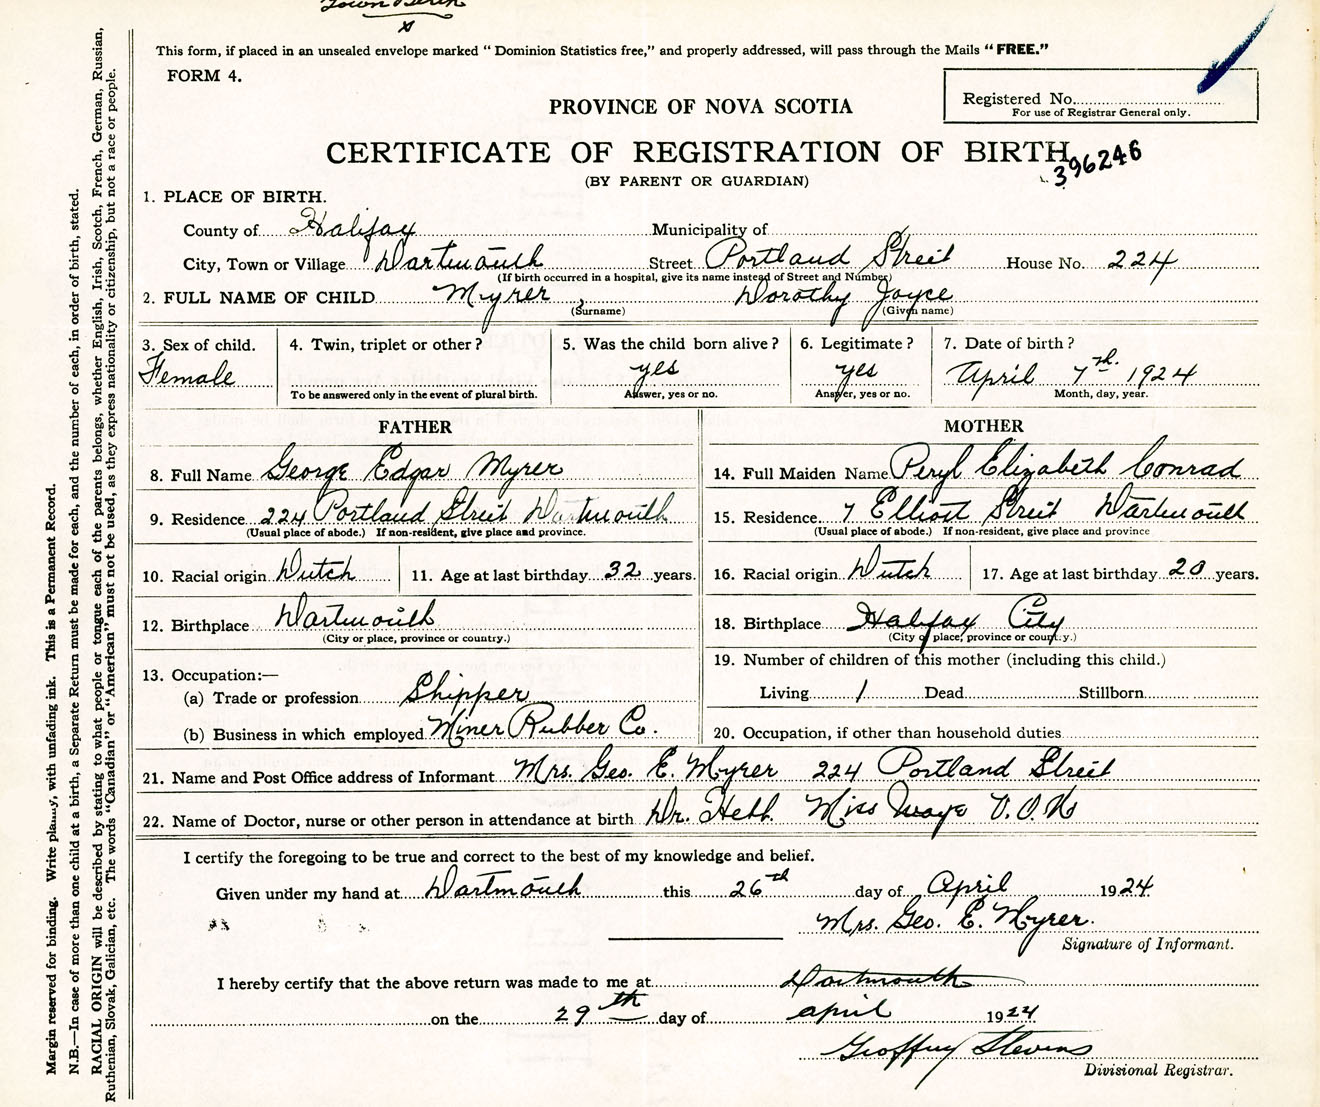 Town Berth
x
This form, if placed in an unsealed envelope marked "Dominion Statistics free," and properly addressed, will pass through the Mails "FREE."
FORM 4.
Registered No.
For use of Registrar General only.
PROVINCE OF NOVA SCOTIA
CERTIFICATE OF REGISTRATION OF BIRTH
396246
(BY PARENT OR GUARDIAN)
1. PLACE OF BIRTH.
County of Halifax Municipality of
City, Town or Village Dartmouth Street Portland Street House No. 224
(If birth occurred in a hospital, give its name instead of Street and Number)
2. FULL NAME OF CHILD Myrer , Dorothy Joyce
(Surname) (Given name)
3. Sex of child. 4. Twin, triplet or other? 5. Was the child born alive? 6. Legitimate? 7. Date of birth?
Female yes yes April 7th 1924
To be answered only in the event of plural birth. Answer, yes or no. Answer, yes or no. Month, day, year.
FATHER MOTHER
8. Full Name George Edgar Myrer 14. Full Maiden Name Peryl Elizabeth Conrad
9. Residence 224 Portland Street Dartmouth 15. Residence 7 Elliott Street Dartmouth
(Usual place of abode.) If non-resident, give place and province. (Usual place of abode.) If non-resident, give place and province
10. Racial origin Dutch 11. Age at last birthday 32 years. 16. Racial origin Dutch 17. Age at last birthday 20 years.
12. Birthplace Dartmouth 18. Birthplace Halifax City
(City or place, province or country.) (City or place, province or country.)
13. Occupation:— 19. Number of children of this mother (including this child.)
(a) Trade or profession Shipper Living 1 Dead Stillborn
(b) Business in which employed Miner Rubber Co. 20. Occupation, if other than household duties
21. Name and Post Office address of Informant Mrs. Geo. E. Myrer 224 Portland Street
22. Name of Doctor, nurse or other person in attendance at birth Dr. Hebb. Miss V.O.N
I certify the foregoing to be true and correct to the best of my knowledge and belief.
Given under my hand at Dartmouth this 26th day of April 1924
Mrs. Geo. E. Myrer.
Signature of Informant.
I hereby certify that the above return was made to me at Dartmouth
on the 29th day of april 1924
Geoffrey Stevens
Divisional Registrar.
Margin reserved for binding. Write plainly, with unfading ink. This is a Permanent Record.
N.B.—In case of more than one child at a birth, a Separate Return must be made for each, and the number of each, in order of birth, stated.
RACIAL ORIGIN will be described by stating to what people or tongue each of the parents belongs, whether English, Irish, Scotch, French, German, Russian,
Ruthenian, Slovak, Galician, etc. The words "Canadian" or "American" must not be used, as they express nationality or citizenship, but not a race or people.